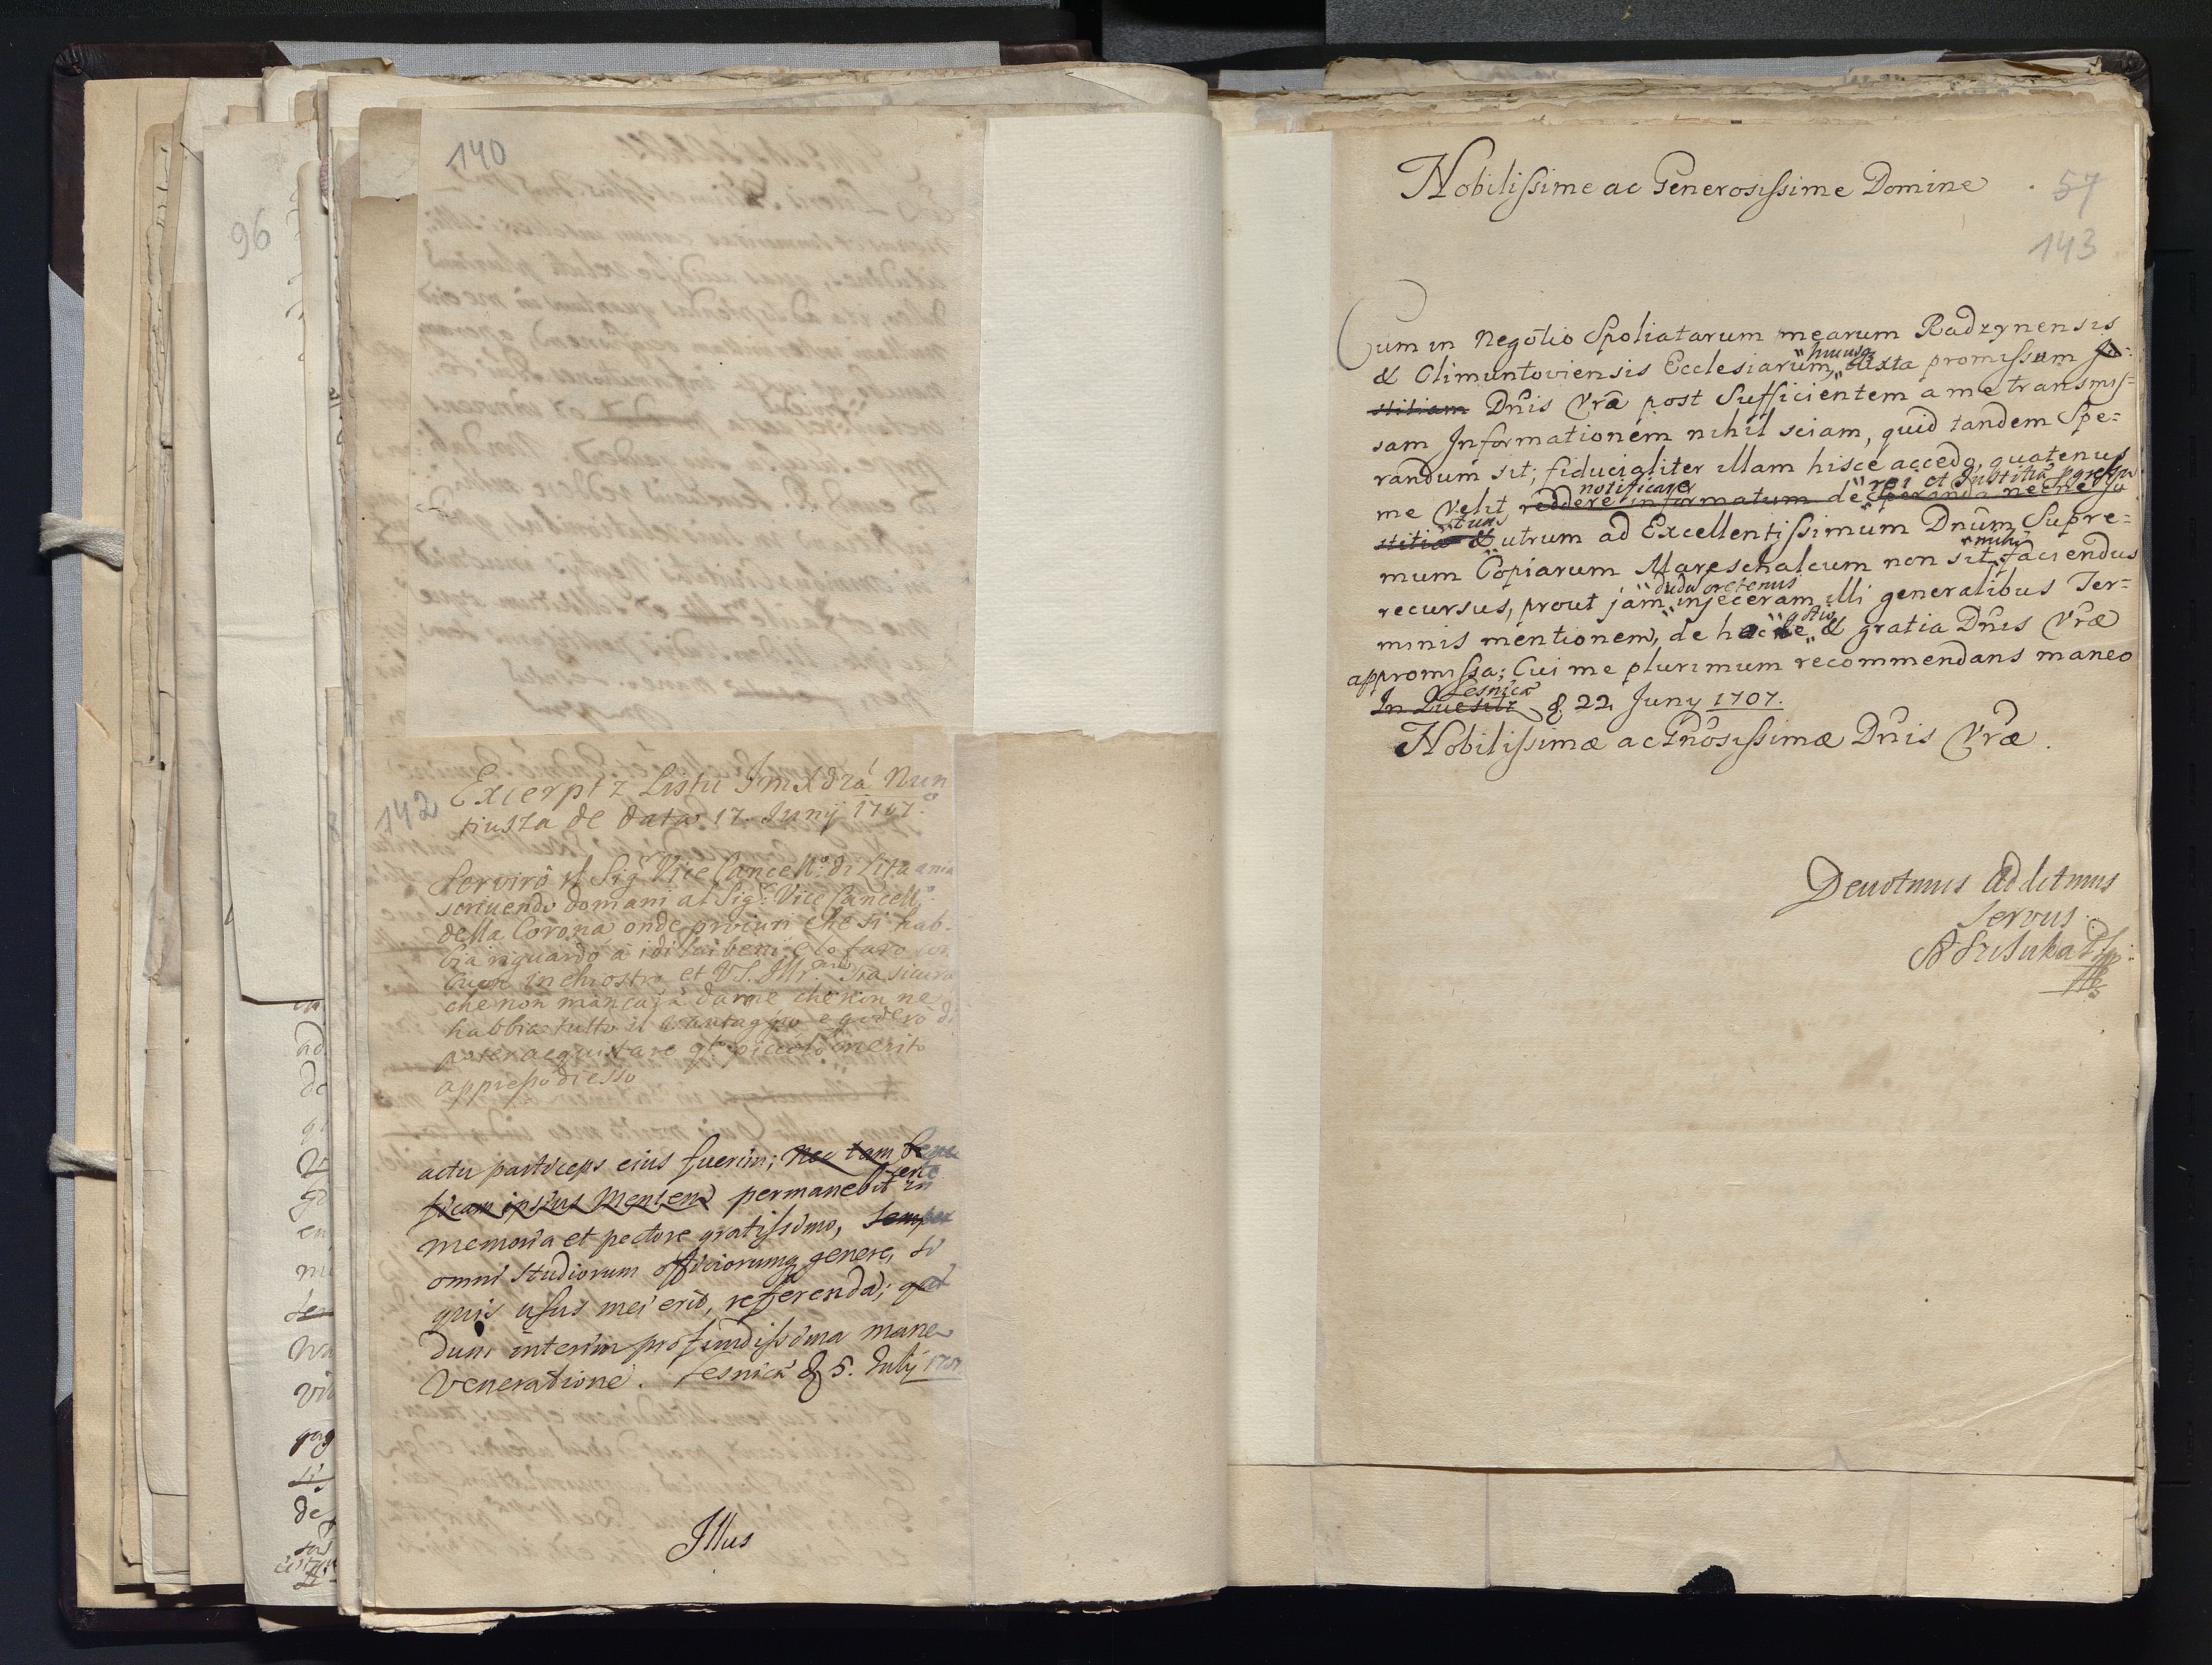 140
96
142
Excerpt z Listu Jmx dza Nun
tiusza de data 17. Junij 1707.
Servirò il Sigr Vice Cancell.o di Lita ania
scrivendo domani al Sigr Vice Cancell.o
della Corona onde procuri che si hab-
bia riguardo a i di lui beni e lo farò con
buon inchiostro et VS. Illr.ma sia sicura
che non mancaja darme che non ne
habbia tutto il vantaggio e goderò di
poter acquistare q.to piccolo merito
appresso di esso
actu particeps eius fuerim; Nec tam bene
ficam ipsius Mentem permanebit certe in
memoria et pectore gratissimo, semper
omni studiorum officiorumq genere, si
quis usus mei erit, refferenda; qui
dum interim profundissima maneo
Veneratione. Lesnica d. 5. Julij 1707
Illus
Nobilissime ac Generosissime Domine
57
143
Cum in Negotio Spoliatarum mearum Radzynensis
& Olimuntoviensis Ecclesiarum, hucusq juxta promissum Ju-
stitiam Dnis Vrae post Sufficientem a me transmis=
sam Informationem nihil sciam, quid tandem Spe=
randum sit; fiducialiter illam hisce accedo, quatenus
me Velit notificare reddere informatum de rei et Justitiae speranda nec ne Ju
stitia & utrum ad Excellentissimum Dnum Supre=
mum Copiarum Mareschalcum non sit mihi faciendus
recursus, prout jam dudu oretenus injeceram illi generalibus Ter=
minis mentionem, de hac re & gratia Dnis Vrae
appromissa; Cui me plurimum recommendans maneo
In Lesnica d. 22 Juny 1707.
Nobilissimae ac Gnosissimae Dnis Vrae.
Devotmus Addictmus
servus